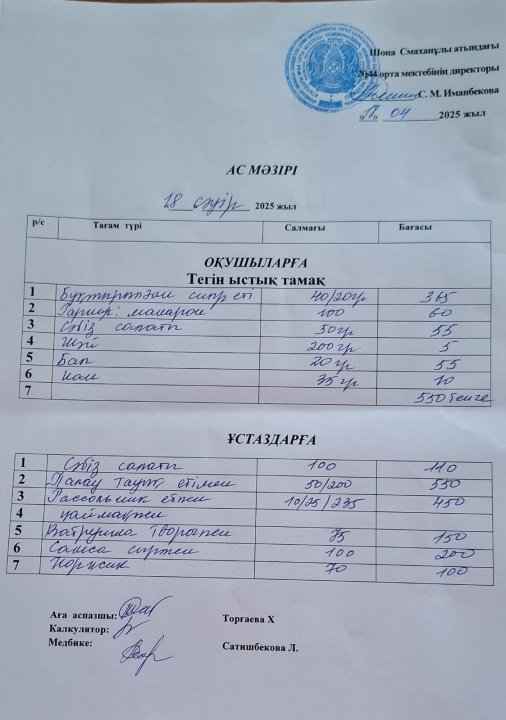 Шона Смаханұлы атындағы
№44 орта мектебінің директоры
С. М. Иманбекова
18 04 2025 жыл
АС МӘЗІРІ
18 сәуір 2025 жыл
р/с Тағам түрі Салмағы Бағасы
ОҚУШЫЛАРҒА
Тегін ыстық тамақ
1 Бұқтырылған сиыр еті 40/20гр 365
2 Гарнир: макарон 100 60
3 Сәбіз салаты 50гр 55
4 Шәй 200гр 5
5 Бал 20гр 55
6 Нан 35гр 10
7 550 теңге
ҰСТАЗДАРҒА
1 Сәбіз салаты 100 110
2 Палау тауық етімен 50/200 550
3 Рассольник етпен 10/25/235 450
4 қаймақпен
5 Ватрушка творогпен 75 150
6 Самса сырпен 100 200
7 Коржик 70 100
Аға аспазшы: Торғаева Х
Калкулятор:
Медбике: Сатишбекова Л.